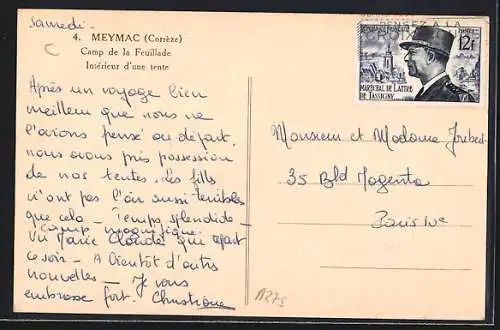 Samedi -
4. MEYMAC (Corrèze)
Camp de la Feuillade
Intérieur d'une tente
Après un voyage bien
meilleur que nous ne
l'avions pensé au départ,
nous avons pris possession
de nos tentes. Les filles
n'ont pas l'air aussi terribles
que cela - Temps splendide -
Camp magnifique.
Vu Marie Claude qui repart
ce soir - A bientôt d'autres
nouvelles - Je vous
embrasse fort. Christiane
PENSEZ A LA
RÉPUBLIQUE FRANÇAISE
POSTES
12F
MARÉCHAL DE LATTRE
DE TASSIGNY
Monsieur et Madame
35 Bld Magenta
Paris